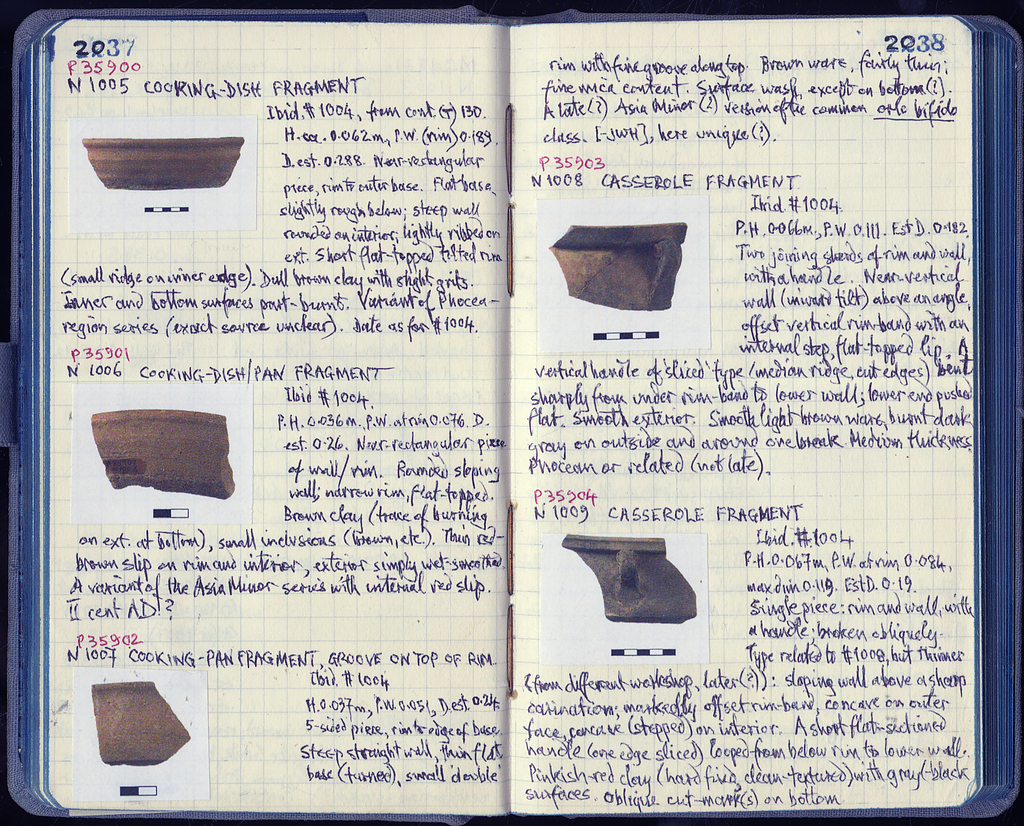 2037
P35900
N 1005 COOKING-DISH FRAGMENT
Ibid. #1004, from cont. (7) 130.
H. ca. 0.062m, P.W. (rim) 0.189.
D. est. 0.288. Near-rectangular
piece, rim to outer base. Flat base,
slightly rough below; steep wall
rounded on interior, lightly ribbed on
ext. Short flat-topped tilted rim
(small ridge on inner edge). Dull brown clay with slight grits.
Inner and bottom surfaces part-burnt. Variant of Phocea-
region series (exact source unclear). Date as for #1004.
P35901
N 1006 COOKING-DISH/PAN FRAGMENT
Ibid #1004.
P.H. 0.036m. P.W. at rim 0.076. D.
est. 0.26. Near-rectangular piece
of wall/rim. Rounded sloping
wall; narrow rim, flat-topped.
Brown clay (trace of burning
on ext. at bottom), small inclusions (brown, etc.). Thin red-
brown slip on rim and interior, exterior simply wet-smoothed.
A variant of the Asia Minor series with internal red slip.
II cent AD!?
P35902
N 1007 COOKING-PAN FRAGMENT, GROOVE ON TOP OF RIM.
Ibid #1004
H. 0.037m, P.W. 0.051, D. est. 0.24
5-sided piece, rim to edge of base.
Steep straight wall, thin flat
base (turned), small double
2038
rim with fine groove along top. Brown ware, fairly thin;
fine mica content. Surface wash, except on bottom (?).
A late(?) Asia Minor(?) version of the common orlo bifido
class. [-JWH], here unique(?).
P35903
N 1008 CASSEROLE FRAGMENT
Ibid. #1004.
P.H. 0.066m., P.W. 0.111. Est D. 0.182.
Two joining sherds of rim and wall,
with a handle. Near-vertical
wall (inward tilt) above an angle,
offset vertical rim-band with an
internal step, flat-topped lip. A
vertical handle of 'sliced' type (median ridge, cut edges) bent
sharply from under rim-band to lower wall; lower end pushed
flat. Smooth exterior. Smooth light brown ware, burnt dark
gray on outside and around one break. Medium thickness.
Phocean or related (not late).
P35904
N 1009 CASSEROLE FRAGMENT
Ibid. #1004
P.H. 0.067m, P.W. at rim 0.084,
max dim 0.119. Est D. 0.19.
Single piece: rim and wall, with
a handle; broken obliquely.
Type related to #1008, but thinner
(from different workshop, later(?)): sloping wall above a sharp
carination, markedly offset rim-band, concave on outer
face, concave (stepped) on interior. A short flat-sectioned
handle (one edge sliced) looped from below rim to lower wall.
Pinkish-red clay (hard fired, clean-textured) with gray(-black
surfaces. Oblique cut-mark(s) on bottom